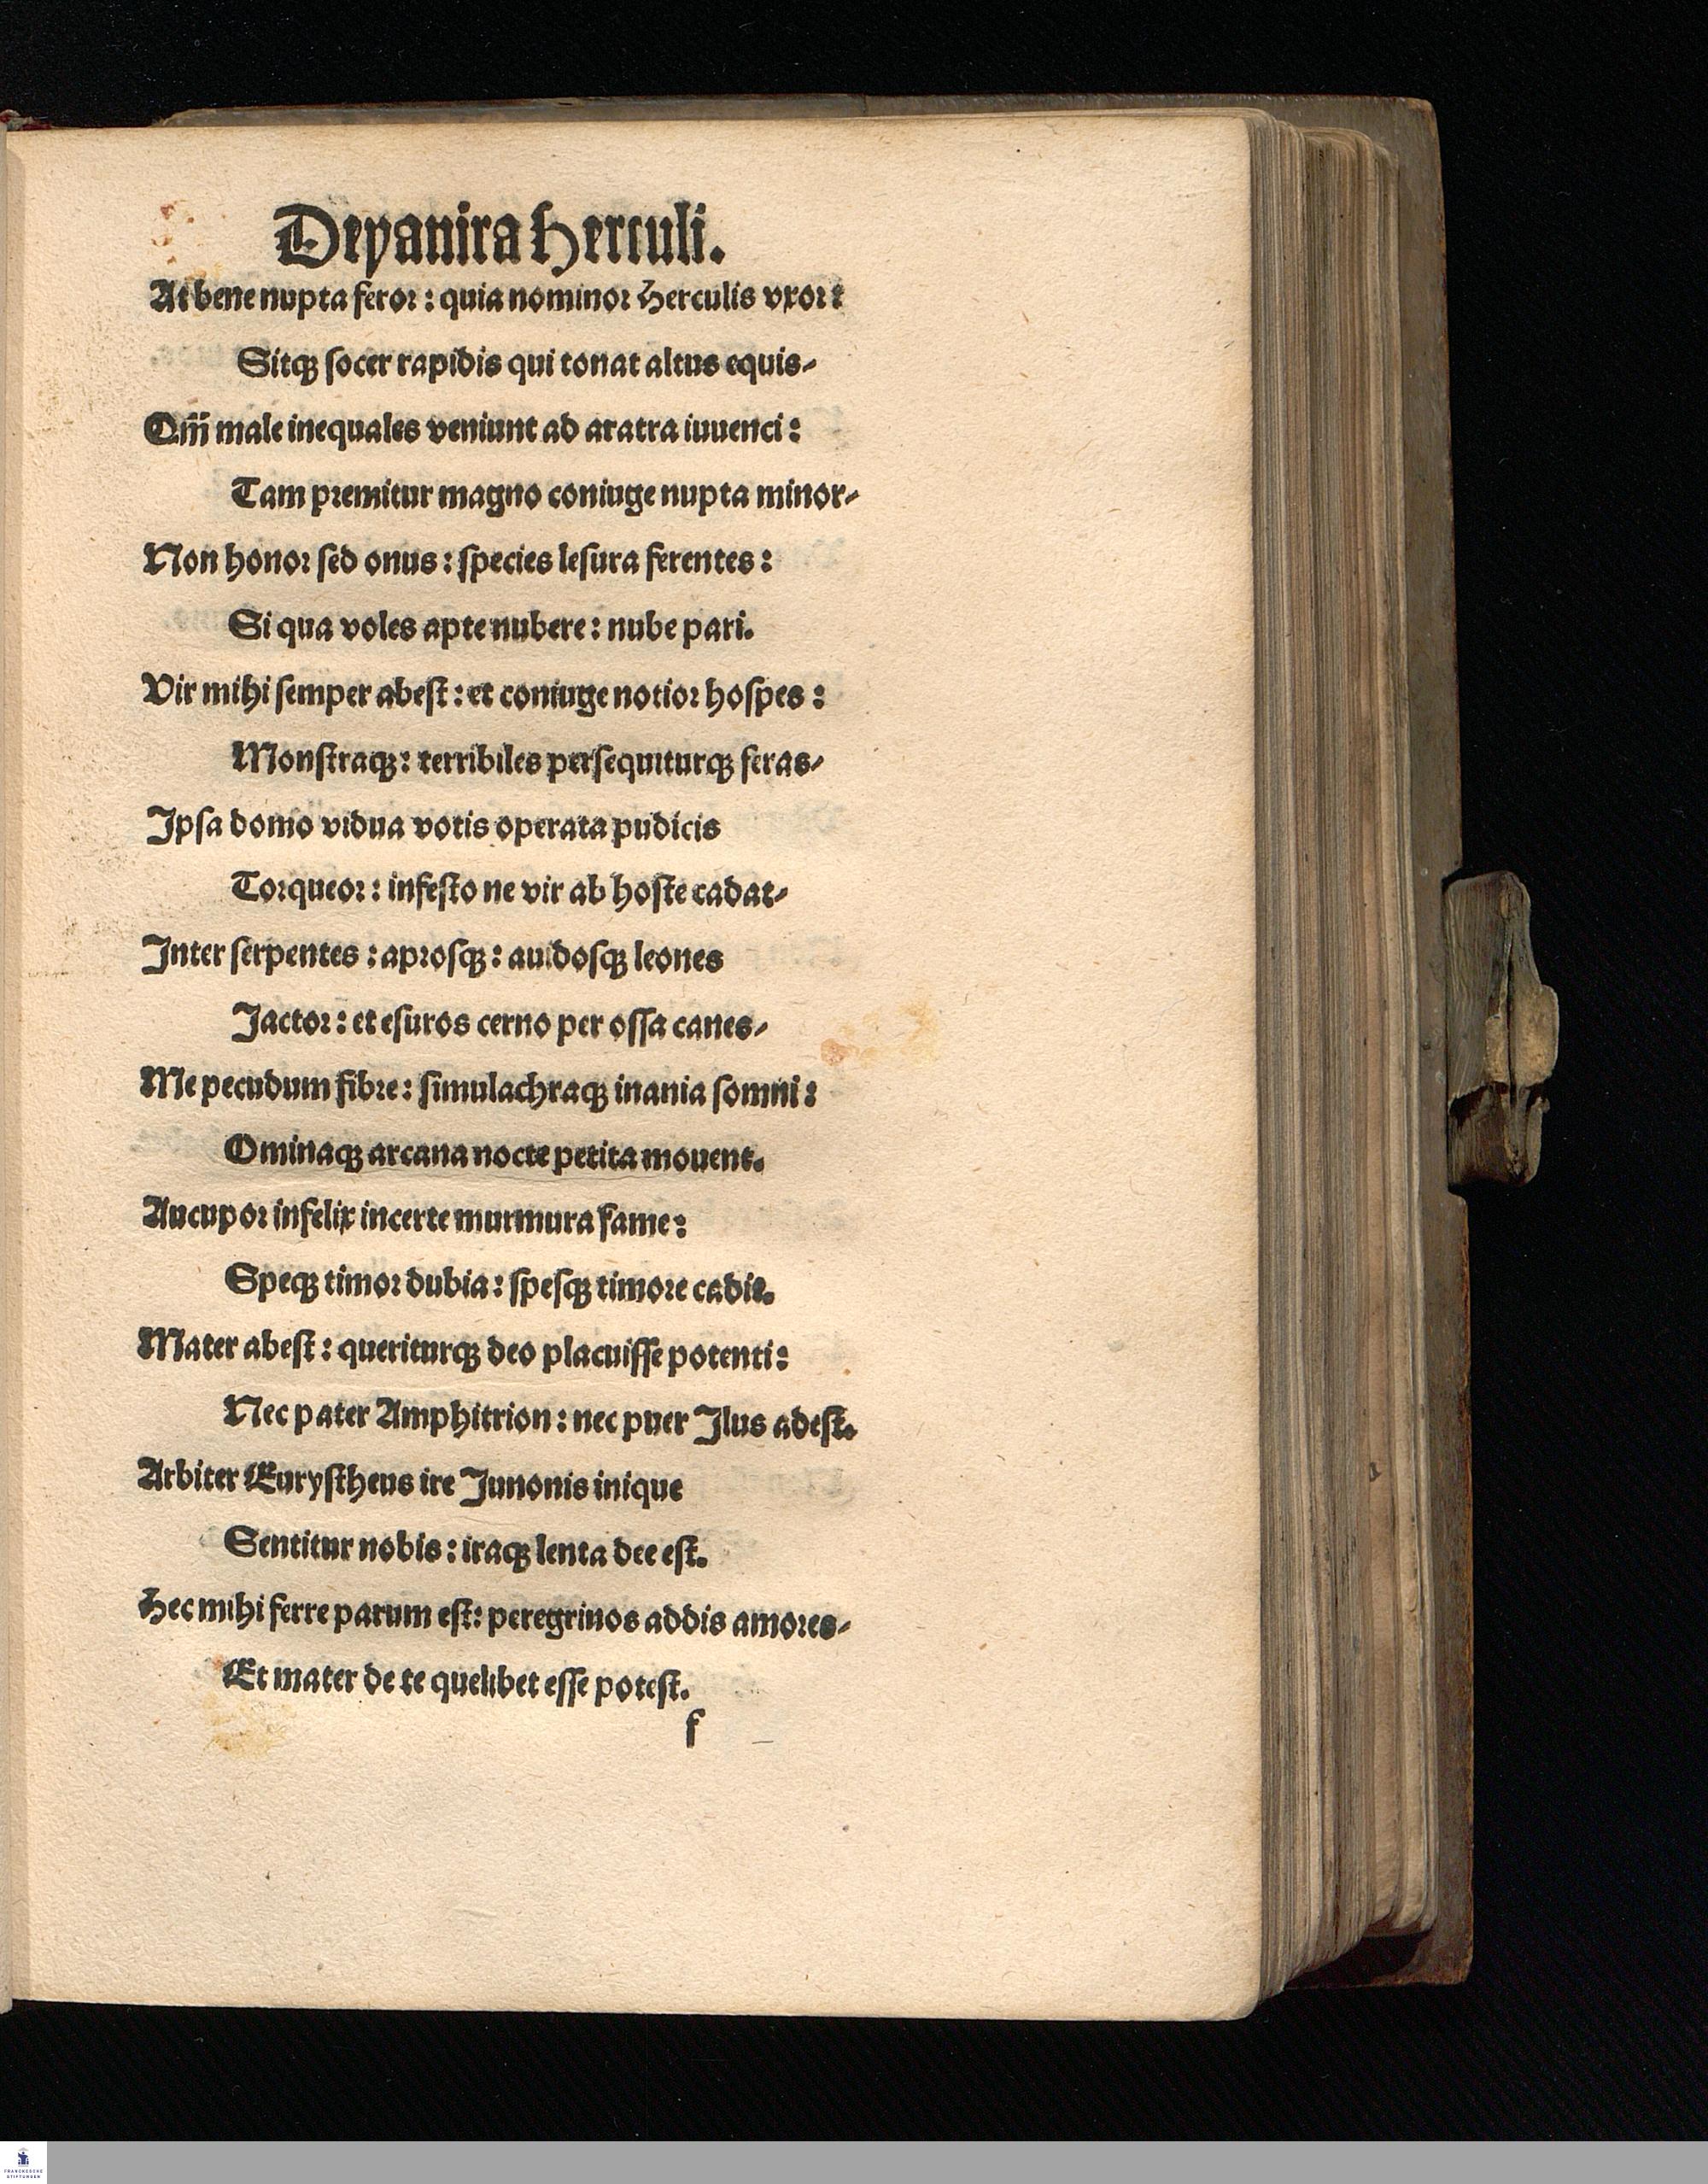 Deyanira Herculi.
At bene nupta feror: quia nominor Herculis vxor:
Sitqꝫ ſocer rapidis qui tonat altus equis⸗
Qm̄ male inequales veniunt ad aratra iuuenci:
Tam premitur magno coniuge nupta minor⸗
Non honor ſed onus: ſpecies leſura ferentes:
Si qua voles apte nubere: nube pari.
Vir mihi ſemper abeſt: et coniuge notior hoſpes:
Monſtraqꝫ: terribiles perſequiturqꝫ feras⸗
Ipſa domo vidua votis operata pudicis
Torqueor: infeſto ne vir ab hoſte cadat⸗
Inter ſerpentes: aproſqꝫ: auidoſqꝫ leones
Jactor: et eſuros cerno per oſſa canes⸗
Me pecudum fibre: ſimulachraqꝫ inania ſomni:
Ominaqꝫ arcana nocte petita mouent.
Aucupor infelix incerte murmura fame:
Speqꝫ timor dubia: ſpeſqꝫ timore cadit.
Mater abeſt: queriturqꝫ deo placuiſſe potenti:
Nec pater Amphitrion: nec puer Ilus adeſt.
Arbiter Euryſtheus ire Junonis inique
Sentitur nobis: iraqꝫ lenta dee eſt.
Hec mihi ferre parum eſt: peregrinos addis amores⸗
Et mater de te quelibet eſſe poteſt.
f
FRANCKESCHE
STIFTUNGEN